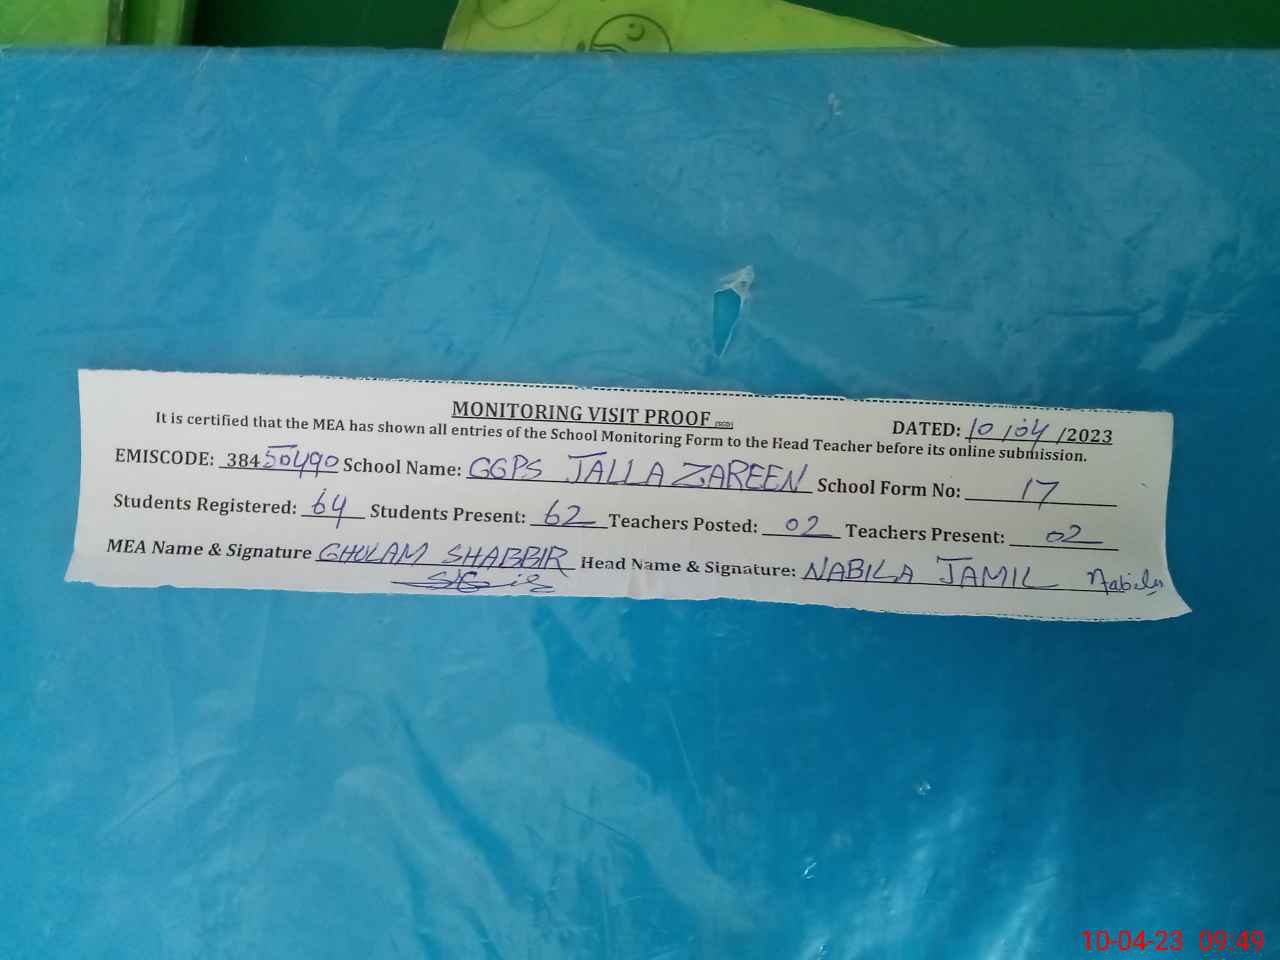 MONITORING VISIT PROOF (SGD)
DATED: 10/04/2023
It is certified that the MEA has shown all entries of the School Monitoring Form to the Head Teacher before its online submission.
EMISCODE: 38450490 School Name: GGPS JALLA ZAREEN School Form No: 17
Students Registered: 64 Students Present: 62 Teachers Posted: 02 Teachers Present: 02
MEA Name & Signature GHULAM SHABBIR Head Name & Signature: NABILA JAMIL Nabila
10-04-23 09:49